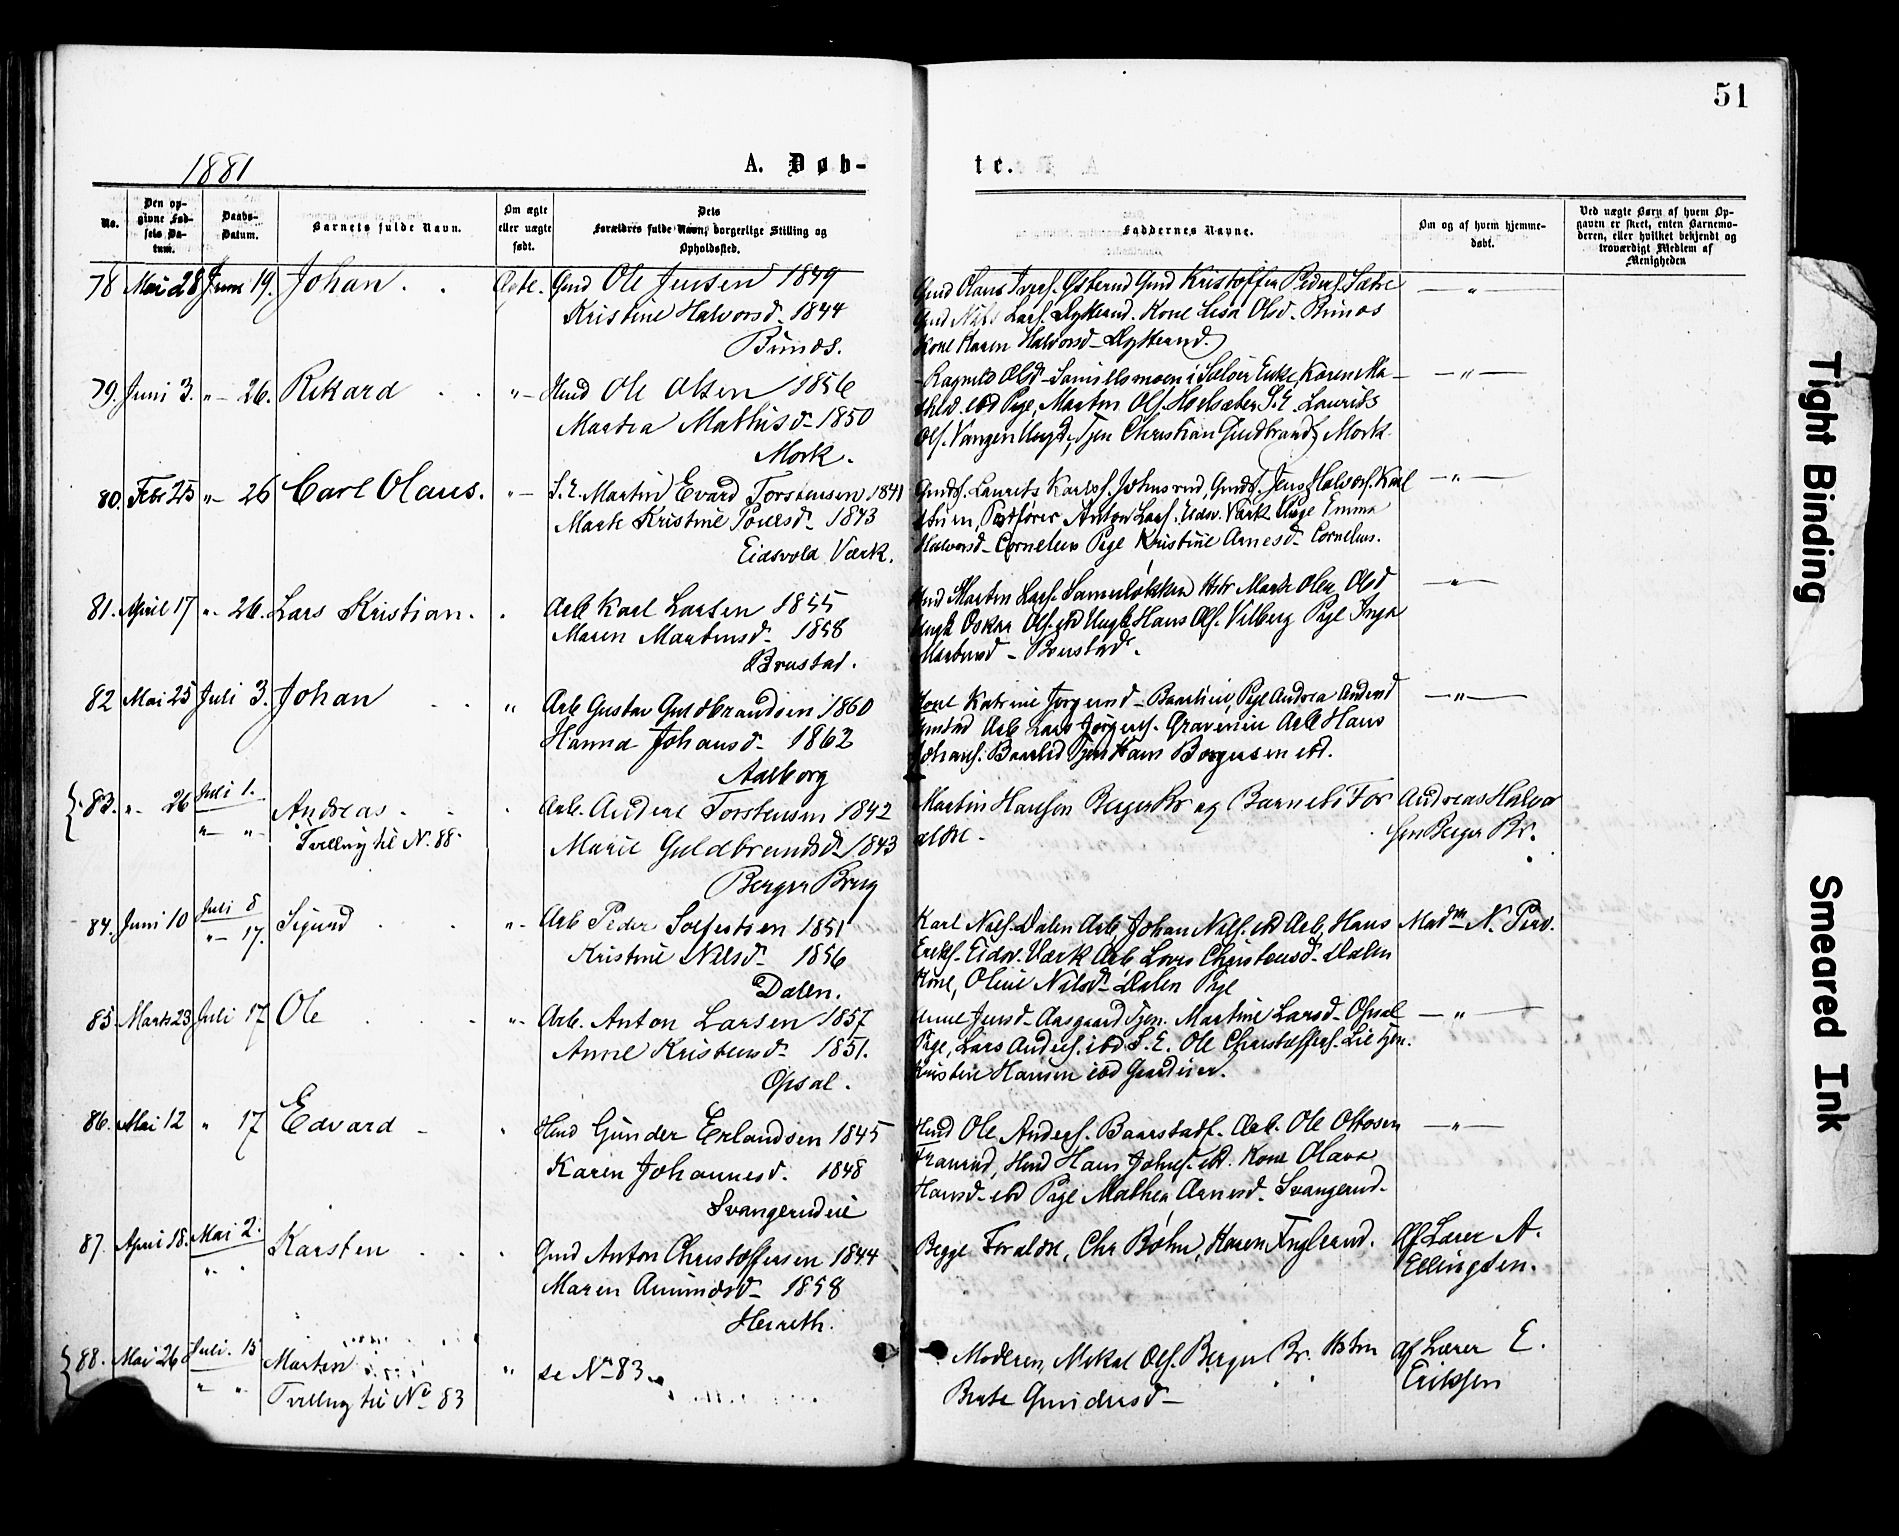 51
1881
A. Døb-
te.
No.
Den opgivne Fødsels Datum.
Daabs-Datum.
Barnets fulde Navn.
Om ægte eller uægte født.
Dets Forældres fulde Navn, borgerlige Stilling og Opholdssted.
Faddernes Navne.
Om og af hvem hjemmedøbt.
Ved uægte Børn af hvem Opgaven er skeet, enten Barnemoderen, eller hvilket bekjendt og troværdigt Medlem af Menigheden
78 Mai 28 Juni 19. Johan. Ægte. Gmd Ole Jensen 1849
Kristine Halvorsd. 1844
Bunæs.
Gmd Olaus Ivers. Gmd Kristoffer Peders. Sætre
Gmd Nils Lars. Kone Lisa Olsd. Bunæs
Kone Karen Halvorsd
79. Juni 3. " 26. Rikard " Hmd Ole Olsen 1856
Marthea Mathisd 1850
Mork.
Ragnild Olsd i Soløer Enke, Karen Ma-
thild. ibd Pige, Martin Ols. S. E. Laurits
Ols. Vangen Ungk, Tjen Christian Guldbrands Mork
— " —
80. Febr 25 " 26 Carl Olaus. " S. E. Martin Evard Torstensen 1841
Marte Kristine Pouelsd 1843
Eidsvold Værk.
Gmds. Laurits Karls. Johnsrud, Gmds. Jens Halvors. Karl
Anton Lars. Eidsv. Værk Pige Emma
Halvorsd Cornelius Pige Kristine Arnesd Cornelius.
— " —
81. April 17 " 26. Lars Kristian. Arb Karl Larsen 1855
Maren Martinsd 1858
Brustad.
Hmd Martin Lars. Marte Olea Olsd
Ungk Oskar Ols. ibd Ungk Hans Ols. Vilberg Pige Inga
Martinsd Brustad.
— " —
82 Mai 25 Juli 3. Johan " Arb Gustav Guldbrandsen 1860
Hanna Johansd 1862
Aalborg
Kone Katrine Jørgensd Pige Andrea Andersd
Arb Lars Jørgens. Arb Hans
Johans. Tjen Hans Borgersen ibd.
— " —
83. " 26 Juli 1. Andreas. Arb. Andreas Torstensen 1842
Tvilling til N. 88
Marie Guldbrandsd 1843
Berger Brug
Martin Hansen Berger Br og Barnets For
ældre.
Andreas Halvor
sen Berger Br.
84. Juni 10 Juli 8 Sigurd " Arb Peder Solfestsen 1851
" 17.
Kristine Nilsd 1856
Dalen.
Karl Nils. Dalen Arb, Johan Nils. ibd Arb, Hans
Eriks. Eidsv. Værk Arb Lovis Christensd Dalen
Kone, Oline Nilsd Dalen Pige
Madm N.
85 Marts 23 Juli 17 Ole " Arb. Anton Larsen 1857
Anne Kristensd 1851.
Opsal.
Anne Jensd Aasgaard Tjen. Martine Larsd Opsal
Pige, Lars Anders. ibd S. E. Ole Christoffers. Lie Tjen.
Kristine Hansen ibd
— " —
86. Mai 12 " 17 Edvard Hmd Gunder Erlandsen 1845
Karen Johannesd. 1848
Svangerudeie
Hmd Ole Anders. Arb. Ole Ottosen
Hmd Hans Johns. ibd. Kone Olava
Hansd ibd Pige Mathea Arnesd. Svangerud.
— " —
87. April 18. Mai 2. Karsten Gmd Anton Christoffersen 1844
Maren Amundsd 1858
Herreth.
Begge Forældre, Chr Bøhn, Maren Englerud.
Af Lærer A.
Ellingsen.
88. Mai 26 Juli. 15 Martin " se N. 83.
Tvilling til No 83
Moderen, Mikal Ols. Berger Br.
Berte Gundersd
af Lærer E.
Eriksen
Tight Binding
Smeared Ink